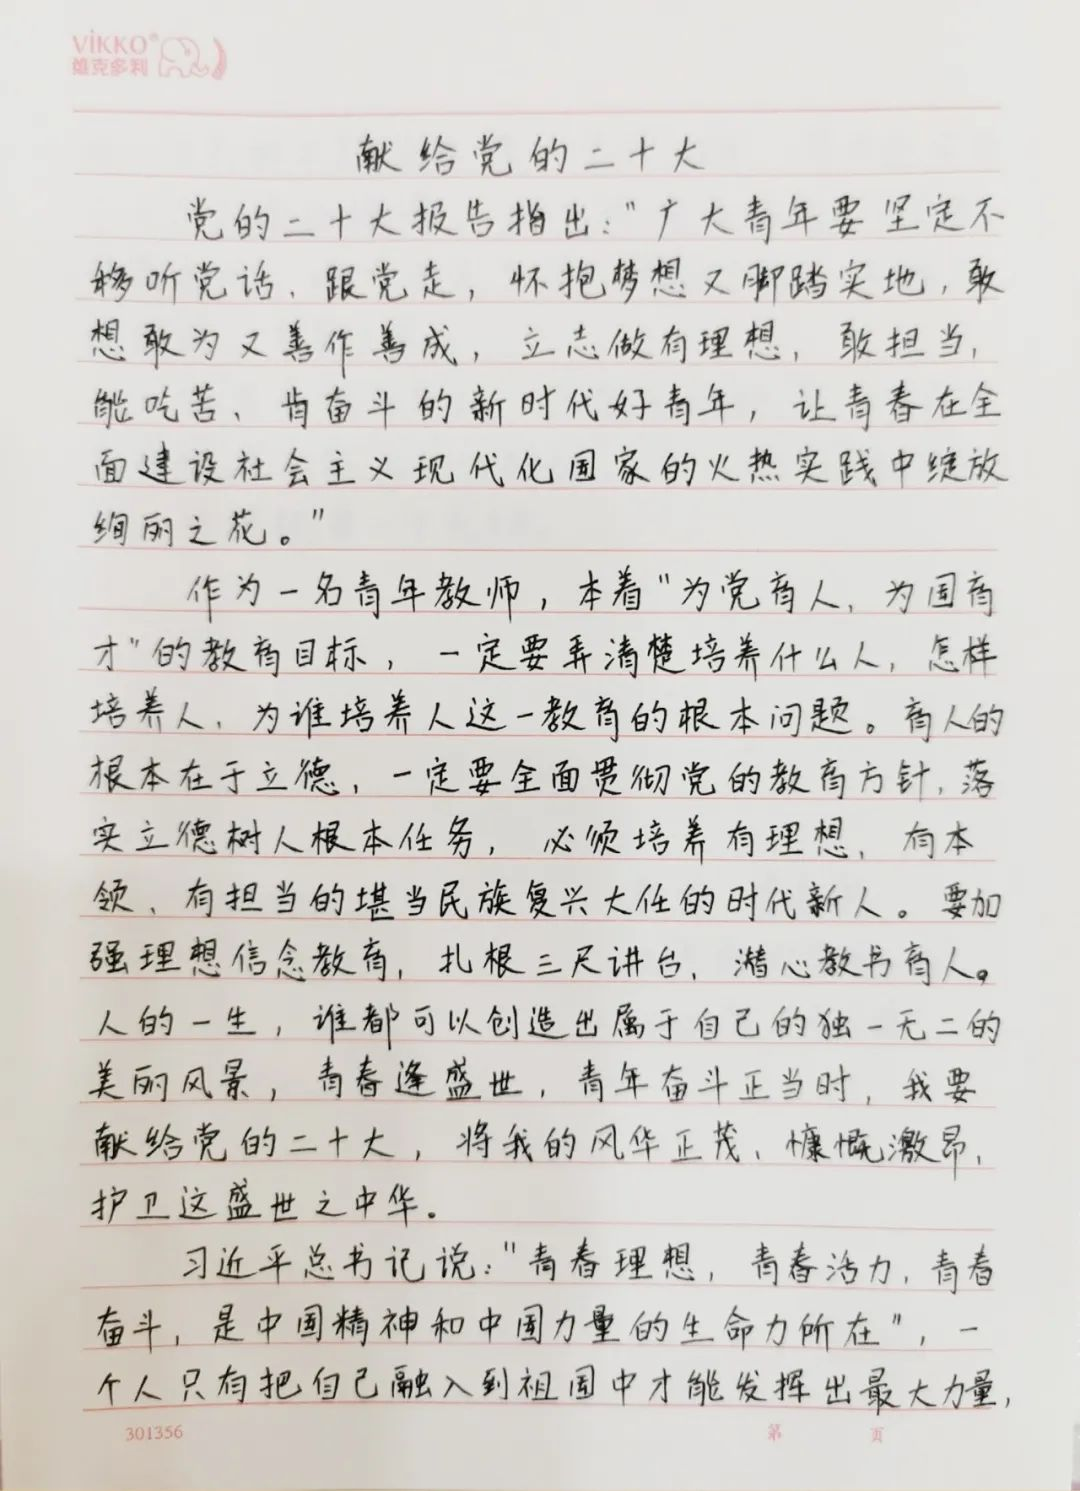 ViKKO®
維克多利
献给党的二十大
党的二十大报告指出:"广大青年要坚定不
移听党话、跟党走，怀抱梦想又脚踏实地，敢
想敢为又善作善成，立志做有理想、敢担当、
能吃苦、肯奋斗的新时代好青年，让青春在全
面建设社会主义现代化国家的火热实践中绽放
绚丽之花。"
作为一名青年教师，本着"为党育人，为国育
才"的教育目标，一定要弄清楚培养什么人，怎样
培养人，为谁培养人这一教育的根本问题。育人的
根本在于立德，一定要全面贯彻党的教育方针，落
实立德树人根本任务，必须培养有理想、有本
领、有担当的堪当民族复兴大任的时代新人。要加
强理想信念教育，扎根三尺讲台，潜心教书育人。
人的一生，谁都可以创造出属于自己的独一无二的
美丽风景，青春逢盛世，青年奋斗正当时，我要
献给党的二十大，将我的风华正茂、慷慨激昂，
护卫这盛世之中华。
习近平总书记说:"青春理想，青春活力，青春
奋斗，是中国精神和中国力量的生命力所在"，一
个人只有把自己融入到祖国中才能发挥出最大力量，
301356 第 页